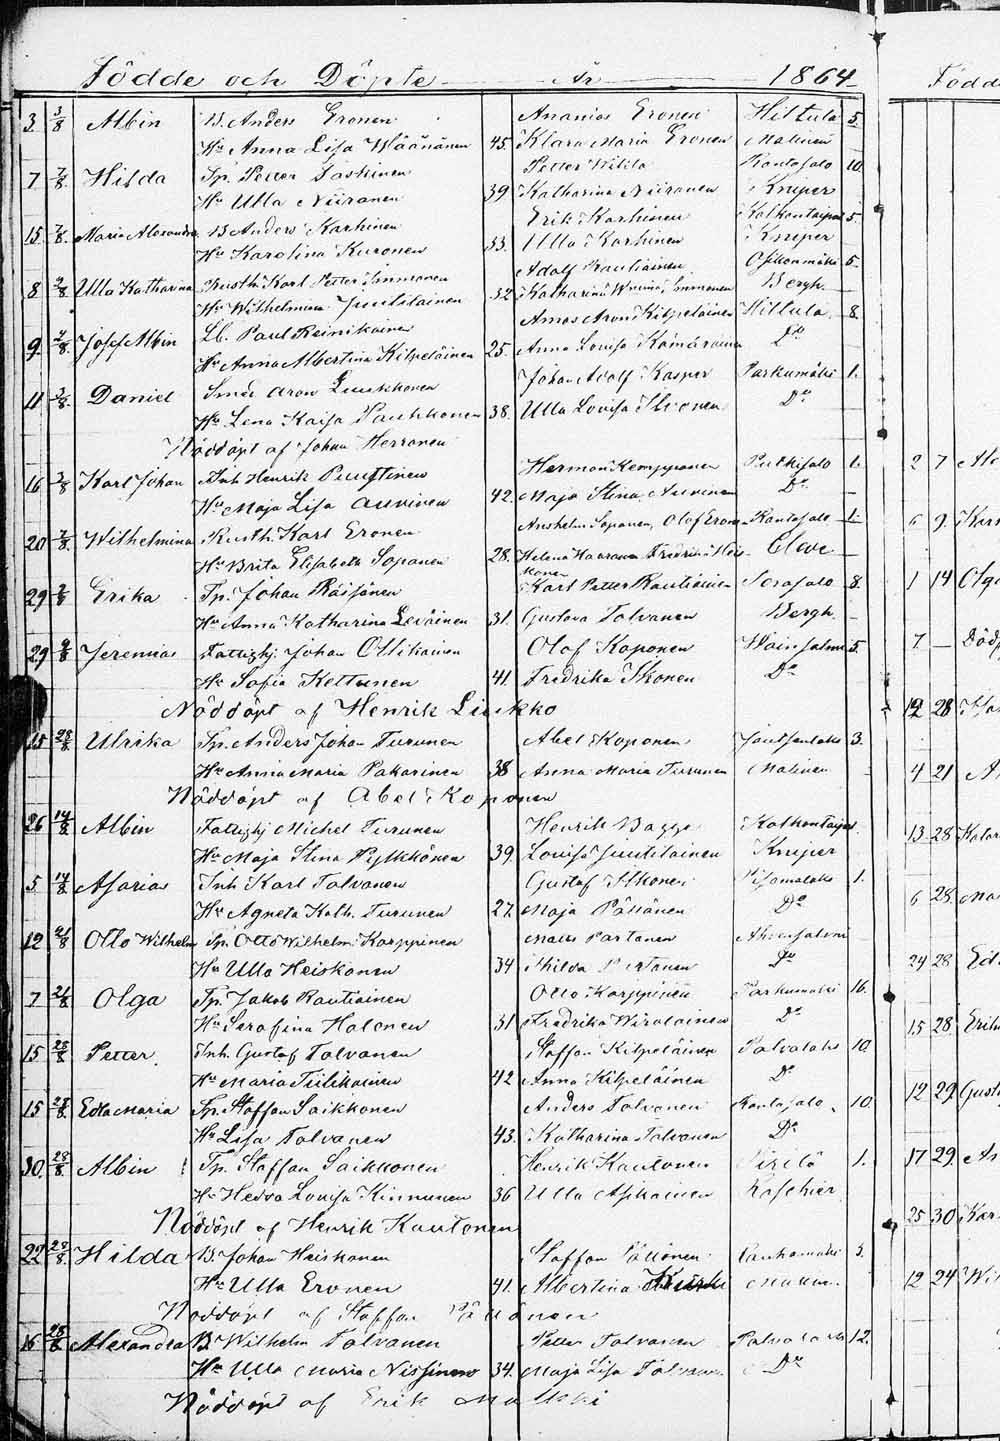 Födde och Döpte År 1864
3. 3/8 Albin B. Anders Eronen Ananias Eronen Hiltula 5.
Hu Anna Lisa Wäänänen 45. Klara Maria Eronen Malinen
7 7/8. Hilda Tp. Petter Laskinen Petter Rantasalo 10.
Hu Ulla Niiranen 39 Katharina Niiranen Kniper
15. 7/8. Maria Alexandra B Anders Karhinen Erik Karhinen 5.
Hu Karolina Kuronen 33. Ulla Karhinen Kniper
8 7/8 Ulla Katharina Rusth. Karl Petter Immonen Adolf Rautiainen Osikonmäki 5.
Hu Wilhelmina Juutilainen 32. Katharina Immonen Bergh.
9. 7/8. Josef Albin Lb. Paul Reinikainen Amos Aron Kilpeläinen Hiltula 8.
Hu Anna Albertina Kilpeläinen 25. Anna Lovisa Do
11 7/8. Daniel Smed Aron Luukkonen Johan Adolf Kasper Parkumäki 1.
Hu Lena Kaisa Paukkonen 38. Ulla Lovisa Do
Nöddöpt af Johan Herranen
16 7/8 Karl Johan Inh Henrik Puustinen Herman Kemppanen Putkisalo 1.
Hu Maja Lisa Auvinen 42. Maja Stina Auvinen Do
20 7/8. Wilhelmina Rusth. Karl Eronen Anshelm Soponen, Olof Eronen Rantasalo 1.
Hu Brita Elisabeth Soponen 28. Helena Fredrika Heis- Cleve
konen
29 7/8 Erika Tp. Johan Räisänen Karl Petter Rautiainen Sorasalo 8.
Hu Anna Katharina Leväinen 31. Gustava Tolvanen Bergh.
29 7/8 Jeremias Fattighj. Johan Ollikainen Olof Koponen 5.
Hu Sofia Kettunen 41. Fredrika Ikonen Do
Nöddöpt af Henrik Liukko
15 28/8. Ulrika Tp. Anders Johan Turunen Abel Koponen 3.
Hu Anna Maria Pakarinen 38 Anna Maria Turunen Malinen
Nöddöpt af Abel Koponen
26 14/8. Albin Fattighj Michel Turunen Henrik Bagge
Hu Maja Stina Pylkkönen 39. Lovisa Juutilainen Kniper
5 14/8. Asarias Inh Karl Tolvanen Gustaf Ikonen 1.
Hu Agneta Kath. Turunen 27. Maja Pöllänen Do
12 21/8 Otto Wilhelm Tp. Otto Wilhelm Karppinen Partanen Ahvensalmi
Hu Ulla Heiskanen 34 Hilda Partanen Do
7 21/8 Olga Tp. Jakob Rautiainen Otto Karppinen Parkumäki 16.
Hu Serafina Halonen 31 Fredrika Wirolainen Do
15 28/8. Petter Inh. Gustaf Tolvanen Staffan Kilpeläinen 10
Hu Maria Tiilikainen 42 Anna Kilpeläinen Do
15 28/8. Edla Maria Tp. Staffan Saikkonen Anders Tolvanen Rantasalo 10.
Hu Lisa Tolvanen 43. Katharina Tolvanen Do
30. 28/8. Albin Tp. Staffan Saikkonen Henrik Kautonen 1.
Hu Hedva Lovisa Kinnunen 36 Ulla Asikainen Raschier
Nöddöpt af Henrik Kautonen
22 28/8. Hilda B. Johan Heiskanen Staffan Pöllönen 3.
Hu Ulla Eronen 41. Albertina
Nöddöpt af Staffan Pöllönen
16 28/8 Alexandra B. Wilhelm Tolvanen Petter Tolvanen 12.
Hu Ulla Maria Nissinen 34. Maja Lisa Tolvanen Do
Nöddöpt af Erik
Födde
2 7
6 9.
1 14 Olga
7
12 28
4 21
13 28
6 28.
24 28
15 28.
12 29. Gust
17 29.
25 30
12 24